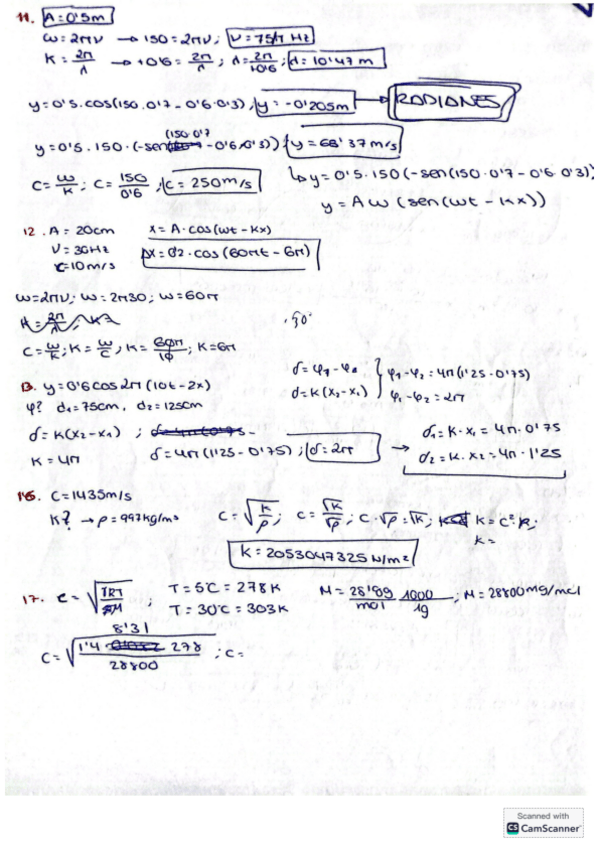 11. A=0'5m
ω=2πν → 150=2πν; ν=75/π Hz
K=2π/λ → +0'6=2π/λ; λ=2π/+0'6; λ=10'47 m
y=0'5.cos(150.0'7-0'6.0'3); y=-0'205m → RADIANES
y=0'5.150.(-sen(150.0'7-0'6.0'3)); y=68'37m/s
C=ω/K; C=150/0'6; C=250m/s
↳ y=0'5.150(-sen(150.0'7-0'6.0'3))
y=Aω(sen(ωt-Kx))
12. A=20cm x=A.cos(ωt-Kx)
ν=30Hz x=0'2.cos(60πt-6π)
c=10m/s
ω=2πν; ω=2π30; ω=60π
.90°
C=ω/K; K=ω/C; K=60π/10; K=6π
13. y=0'6cos2π(10t-2x)
φ? d₁=75cm, d₂=125cm
δ=K(x₂-x₁);
K=4π δ=4π(1'25-0'75); δ=2π
d=K(x₂-x₁) φ₁-φ₂=4π(1'25-0'75)
φ₁-φ₂=2π
→ δ₁=K.x₁=4π.0'75
δ₂=K.x₂=4π.1'25
C=1435m/s
K? → ρ=997kg/m³
C=√K/ρ; C=√K/√ρ; C.√ρ=√K; K=C².ρ;
K=
K=2053047325 N/m²
17. T=5°C=278K M=28'8g/mol 1000/1g; M=28800mg/mol
T=30°C=303K
8'31
C=√1'4 278/28800; C=
Scanned with
CS CamScanner